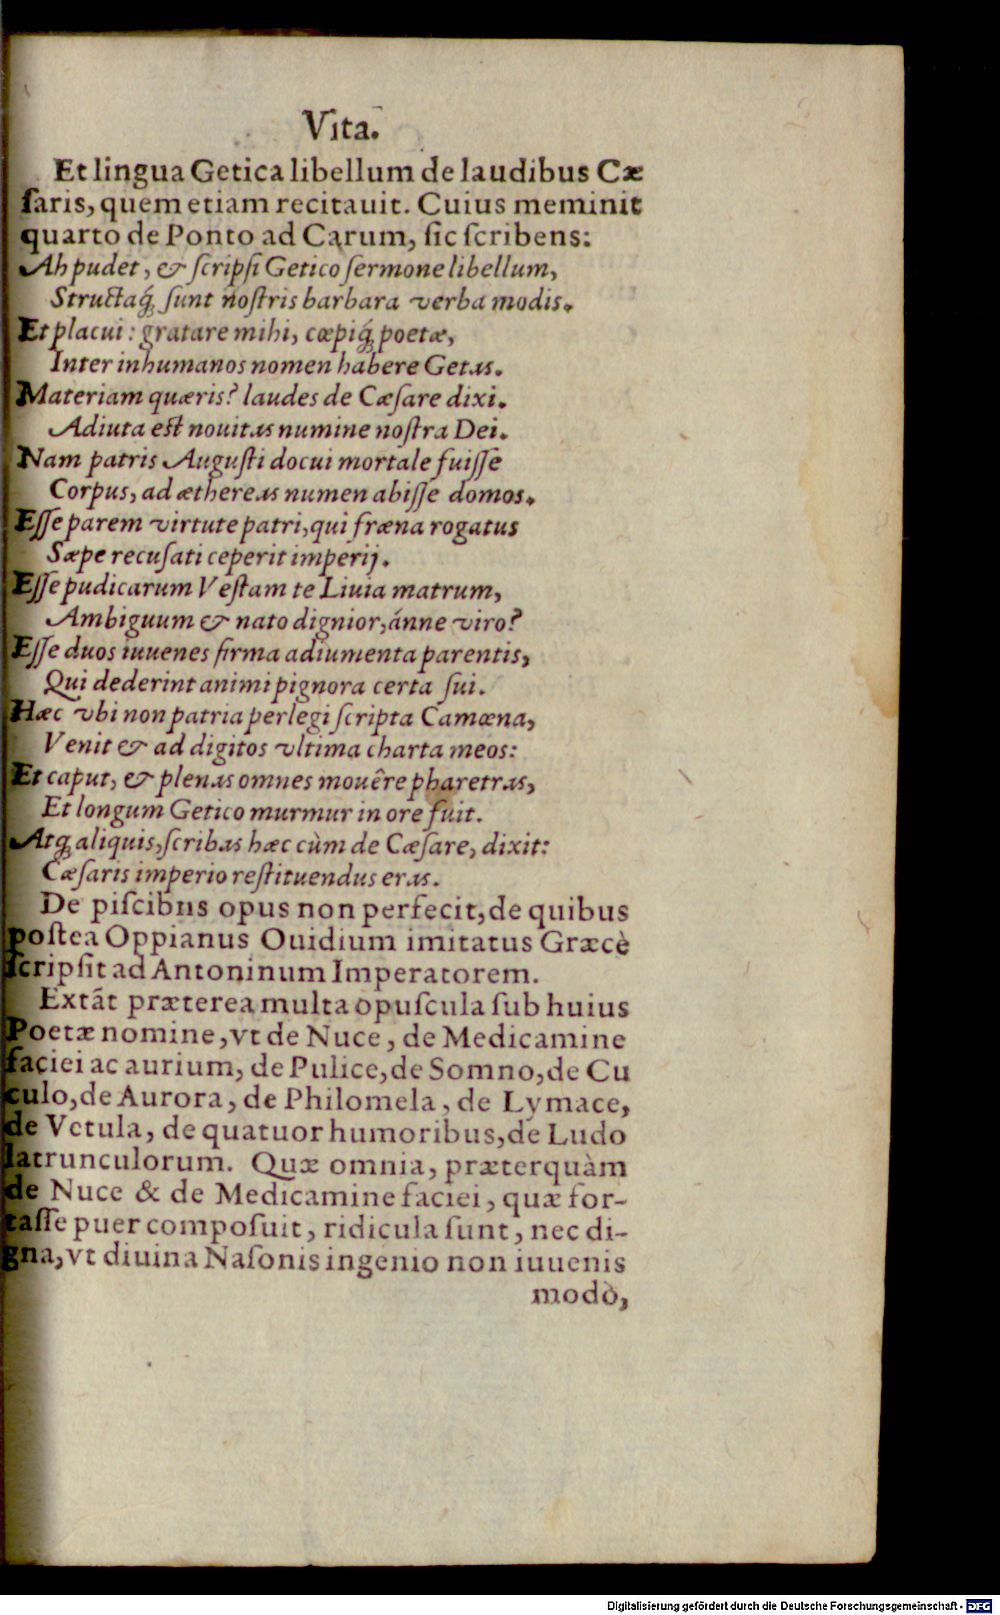 Vita.
Et lingua Getica libellum de laudibus Cæ
ſaris, quem etiam recitauit. Cuius meminit
quarto de Ponto ad Carum, ſic ſcribens:
Ah pudet, & ſcripſi Getico ſermone libellum,
Structaq́; ſunt noſtris barbara verba modis.
Et placui: gratare mihi, cœpiq́; poetæ,
Inter inhumanos nomen habere Getas.
Materiam quæris? laudes de Cæſare dixi.
Adiuta eſt nouitas numine noſtra Dei.
Nam patris Auguſti docui mortale fuiſſe
Corpus, ad æthereas numen abiſſe domos.
Eſſe parem virtute patri, qui fræna rogatus
Sæpe recuſati ceperit imperij.
Eſſe pudicarum Veſtam te Liuia matrum,
Ambiguum & nato dignior, ánne viro?
Eſſe duos iuuenes firma adiumenta parentis,
Qui dederint animi pignora certa ſui.
Hæc vbi non patria perlegi ſcripta Camœna,
Venit & ad digitos vltima charta meos:
Et caput, & plenas omnes mouêre pharetras,
Et longum Getico murmur in ore fuit.
Atq; aliquis, ſcribas hæc cùm de Cæſare, dixit:
Cæſaris imperio reſtituendus eras.
De piſcibus opus non perfecit, de quibus
poſtea Oppianus Ouidium imitatus Græcè
ſcripſit ad Antoninum Imperatorem.
Extãt præterea multa opuſcula ſub huius
Poetæ nomine, vt de Nuce, de Medicamine
faciei ac aurium, de Pulice, de Somno, de Cu
culo, de Aurora, de Philomela, de Lymace,
de Vetula, de quatuor humoribus, de Ludo
latrunculorum. Quæ omnia, præterquàm
de Nuce & de Medicamine faciei, quæ for-
taſſe puer compoſuit, ridicula ſunt, nec di-
gna, vt diuina Naſonis ingenio non iuuenis
modò,
Digitalisierung gefördert durch die Deutsche Forschungsgemeinschaft - DFG